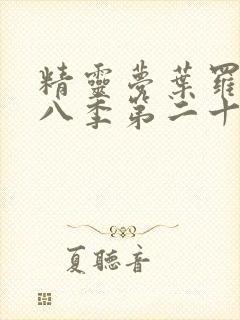 精靈夢葉羅
八季第二十
夏聽音